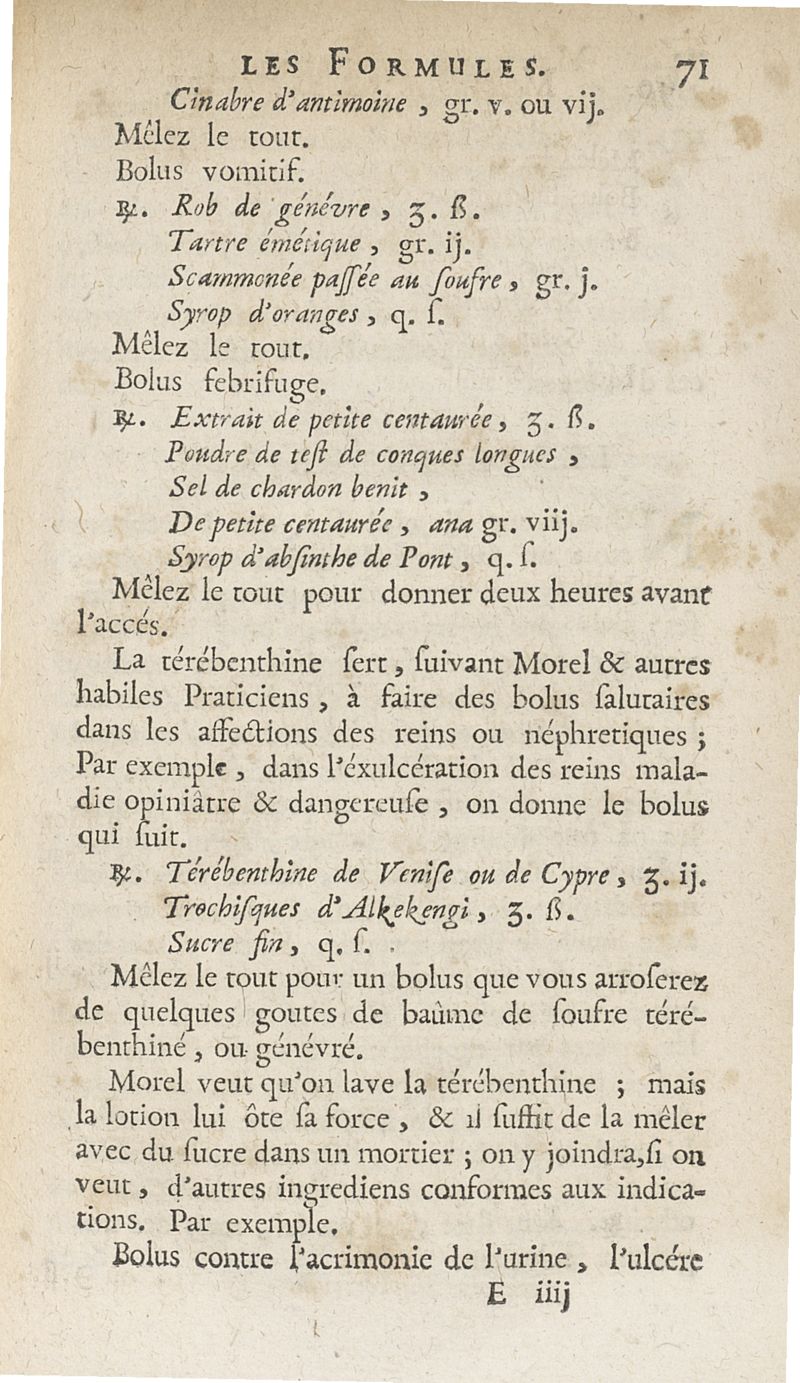 LES FORMULES. 71
Cinabre d'antimoine, gr. v. ou vij.
Mêlez le tout.
Bolus vomitif.
℞. Rob de génévre, ʒ. ß.
Tartre émétique, gr. ij.
Scammonée paſſée au ſoufre, gr. j.
Syrop d'oranges, q. ſ.
Mêlez le tout.
Bolus febrifuge.
℞. Extrait de petite centaurée, ʒ. ß.
Poudre de teſt de conques longues,
Sel de chardon benit,
De petite centaurée, ana gr. viij.
Syrop d'abſinthe de Pont, q. ſ.
Mêlez le tout pour donner deux heures avant
l'accés.
La térébenthine ſert, ſuivant Morel & autres
habiles Praticiens, à faire des bolus ſalutaires
dans les affections des reins ou néphretiques;
Par exemple, dans l'éxulcération des reins mala-
die opiniâtre & dangereuſe, on donne le bolus
qui ſuit.
℞. Térébenthine de Veniſe ou de Cypre, ʒ. ij.
Trochiſques d'Alkekengi, ʒ. ß.
Sucre fin, q. ſ.
Mêlez le tout pour un bolus que vous arroſerez
de quelques goutes de baûme de ſoufre téré-
benthiné, ou génévré.
Morel veut qu'on lave la térébenthine; mais
la lotion lui ôte ſa force, & il ſuffit de la mêler
avec du ſucre dans un mortier; on y joindra, ſi on
veut, d'autres ingrediens conformes aux indica-
tions. Par exemple.
Bolus contre l'acrimonie de l'urine, l'ulcére
E iiij